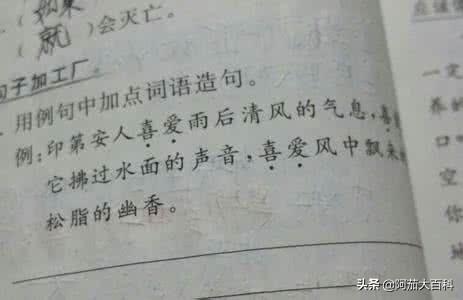 （如果
（就）会灭亡。
句子加工厂。
用例句中加点词语造句。
例:印第安人喜爱雨后清风的气息,喜
它拂过水面的声音,喜爱风中飘来
松脂的幽香。
一定
养的
口
空
你
地
头条 @阿茄大百科